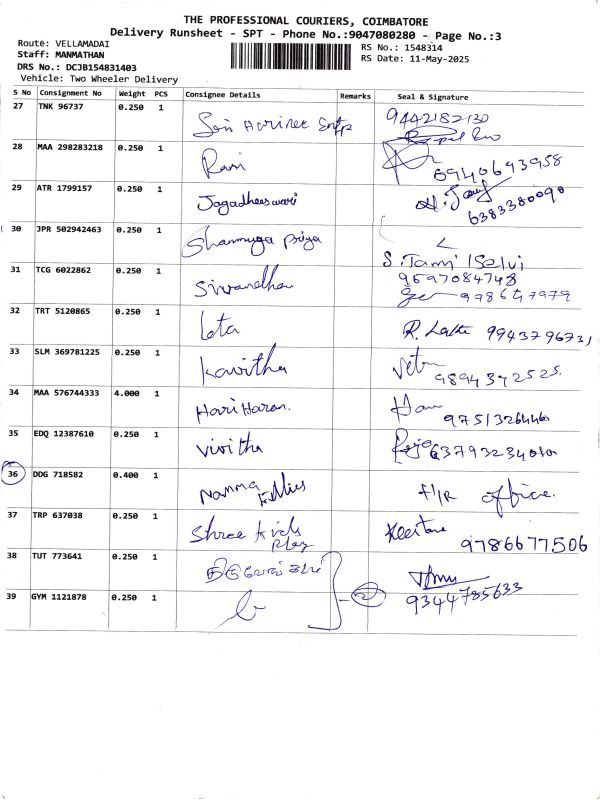 THE PROFESSIONAL COURIERS, COIMBATORE
Delivery Runsheet - SPT - Phone No.:9047080280 - Page No.:3
Route: VELLAMADAI
Staff: MANMATHAN
DRS No.: DCJB154831403
Vehicle: Two Wheeler Delivery
RS No.: 1548314
RS Date: 11-May-2025
S No Consignment No Weight PCS Consignee Details Remarks Seal & Signature
27 TNK 96737 0.250 1 9442182130
28 MAA 298283218 0.250 1 Rani 8940693958
29 ATR 1799157 0.250 1 Jagadheeswari 6383380090
30 JPR 502942463 0.250 1 Shanmuga priya S. Tamil Selvi
31 TCG 6022862 0.250 1 Sivanandhan 9597084748
32 TRT 5120865 0.250 1 Lata R. Latha
33 SLM 369781225 0.250 1 Kavitha 9894392525.
34 MAA 576744333 4.000 1 Hari Haran. 9751326446
35 EDQ 12387610 0.250 1 Vivitha
36 DDG 718582 0.400 1 Namma f/R office.
37 TRP 637038 0.250 1 Shree Kids Play Keertana 9786677506
38 TUT 773641 0.250 1
39 GYM 1121878 0.250 1 2 9344785633